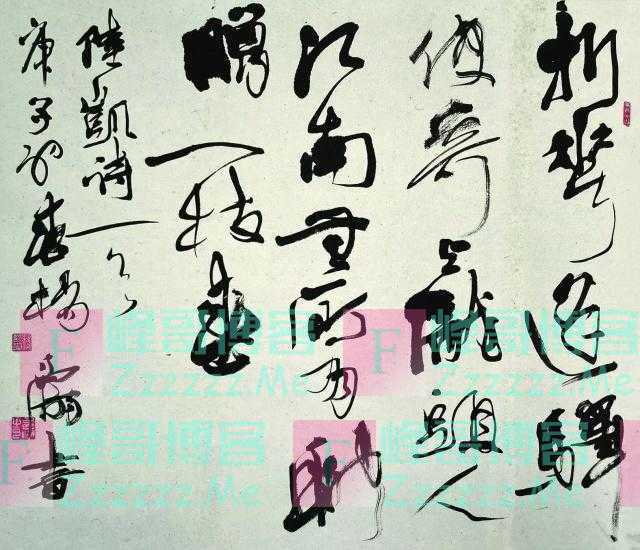 折花逢驛
使寄與隴頭人
江南無所有聊
贈一枝春
陸凱詩一首
庚子初春
書
F 峰哥博客
Zzzzzz.Me
F 峰哥博客
Zzzzzz.Me
F 峰哥博客
Zzzzzz.Me
F 峰哥博客
Zzzzzz.Me